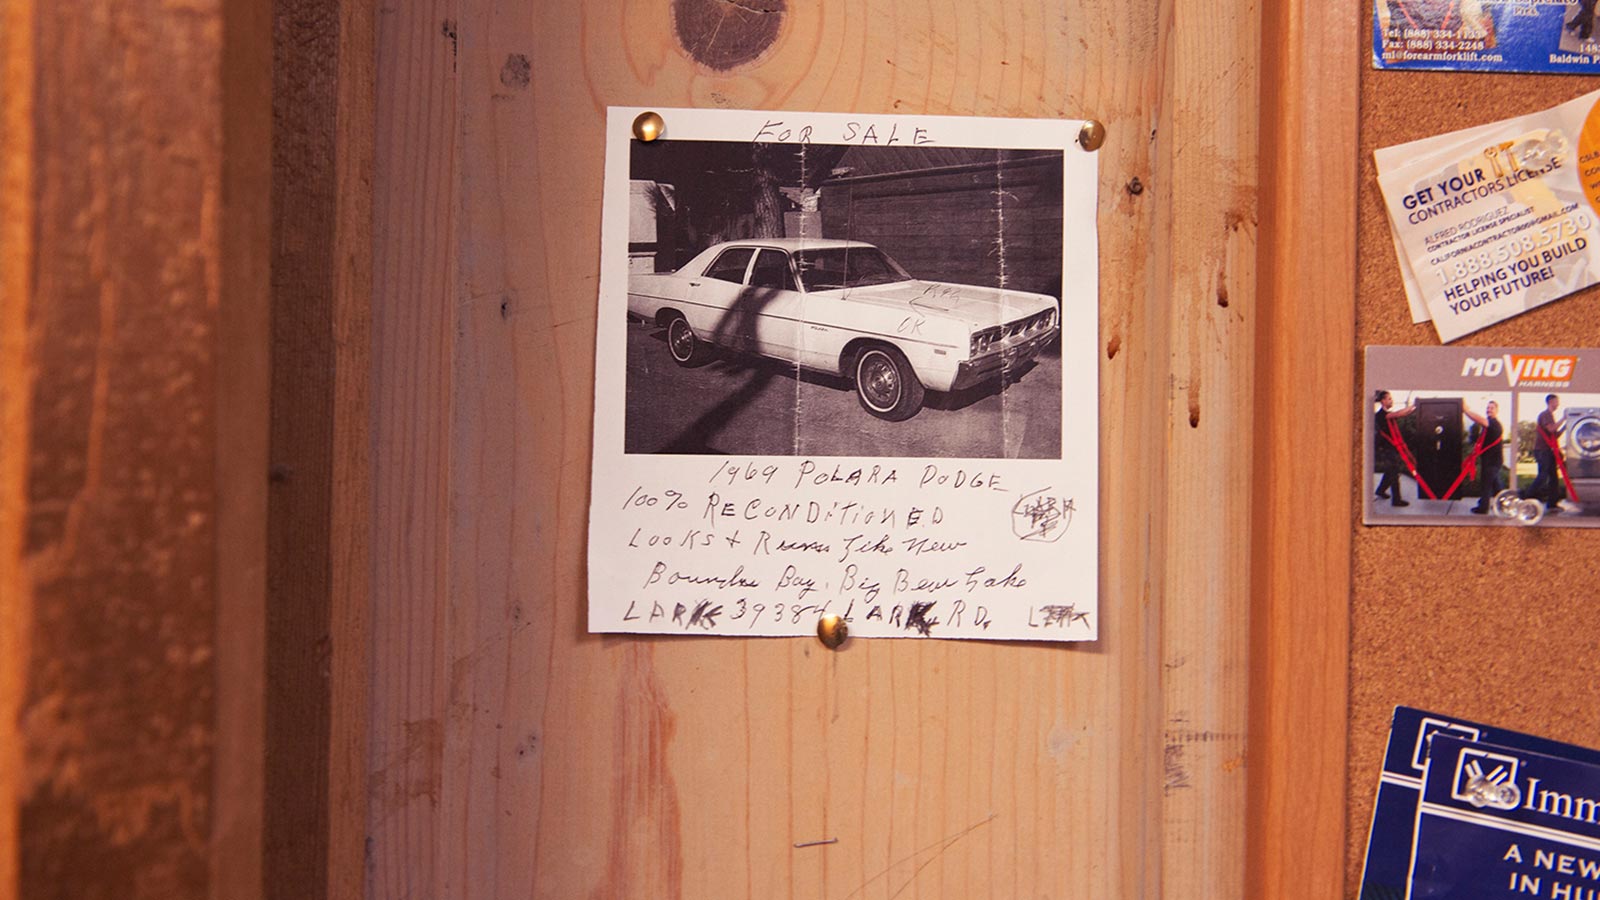 FOR SALE
OK
1969 POLARA DODGE
100% RECONDITIONED
LOOKS + Runs Like New
Boundre Bay, Big Bear Lake
LARK 39384 LARK RD.
Tel: (888) 334-1133
Fax: (888) 334-2248
ml@forearmforklift.com
Baldwin P
GET YOUR
CONTRACTORS LICENSE
ALFRED RODRIGUEZ
CONTRACTOR LICENSE SPECIALIST
CALIFORNIACONTRACTOR01@GMAIL.COM
1.888.508.5730
HELPING YOU BUILD
YOUR FUTURE!
MOVING
HARNESS
Imm
A NEW
IN HU